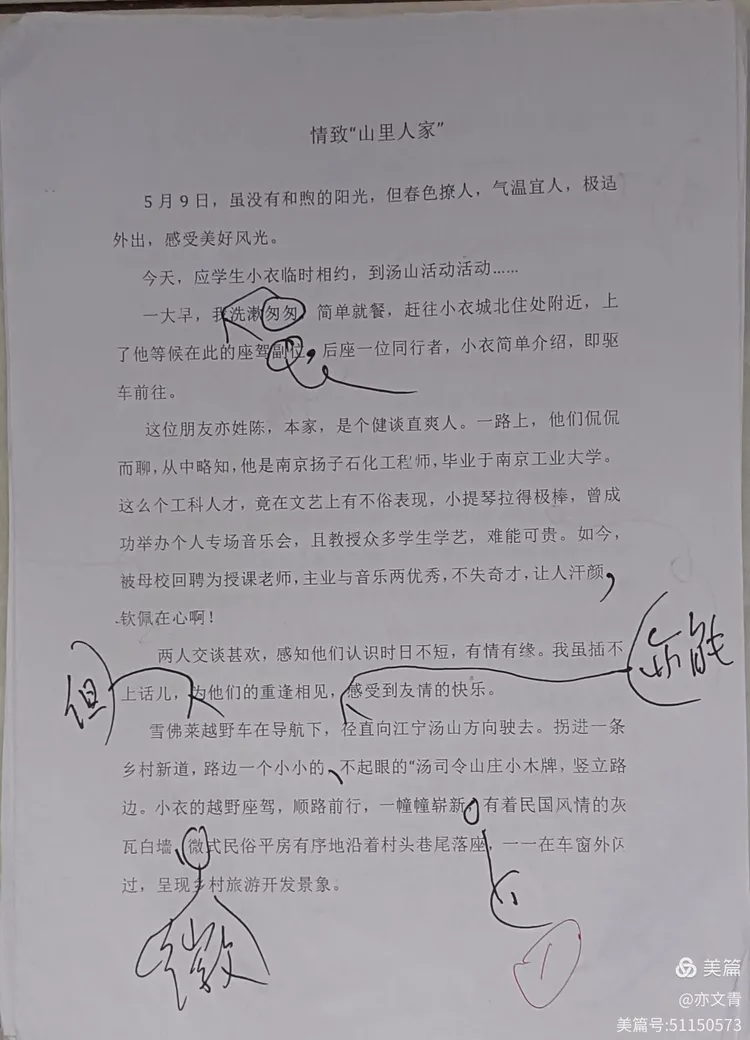 情致“山里人家”
5月9日，虽没有和煦的阳光，但春色撩人，气温宜人，极适
外出，感受美好风光。
今天，应学生小衣临时相约，到汤山活动活动……
一大早，我洗漱匆匆，简单就餐，赶往小衣城北住处附近，上
了他等候在此的座驾副位，后座一位同行者，小衣简单介绍，即驱
车前往。
这位朋友亦姓陈，本家，是个健谈直爽人。一路上，他们侃侃
而聊，从中略知，他是南京扬子石化工程师，毕业于南京工业大学。
这么个工科人才，竟在文艺上有不俗表现，小提琴拉得极棒，曾成
功举办个人专场音乐会，且教授众多学生学艺，难能可贵。如今，
被母校回聘为授课老师，主业与音乐两优秀，不失奇才，让人汗颜，
钦佩在心啊！
两人交谈甚欢，感知他们认识时日不短，有情有缘。我虽插不
亦能
上话儿，为他们的重逢相见，感受到友情的快乐。
但
雪佛莱越野车在导航下，径直向江宁汤山方向驶去。拐进一条
乡村新道，路边一个小小的、不起眼的“汤司令山庄小木牌，竖立路
边。小衣的越野座驾，顺路前行，一幢幢崭新，有着民国风情的灰
瓦白墙、微式民俗平房有序地沿着村头巷尾落座，一一在车窗外闪
过，呈现乡村旅游开发景象。
徽
1
美篇
@亦文青
美篇号:51150573